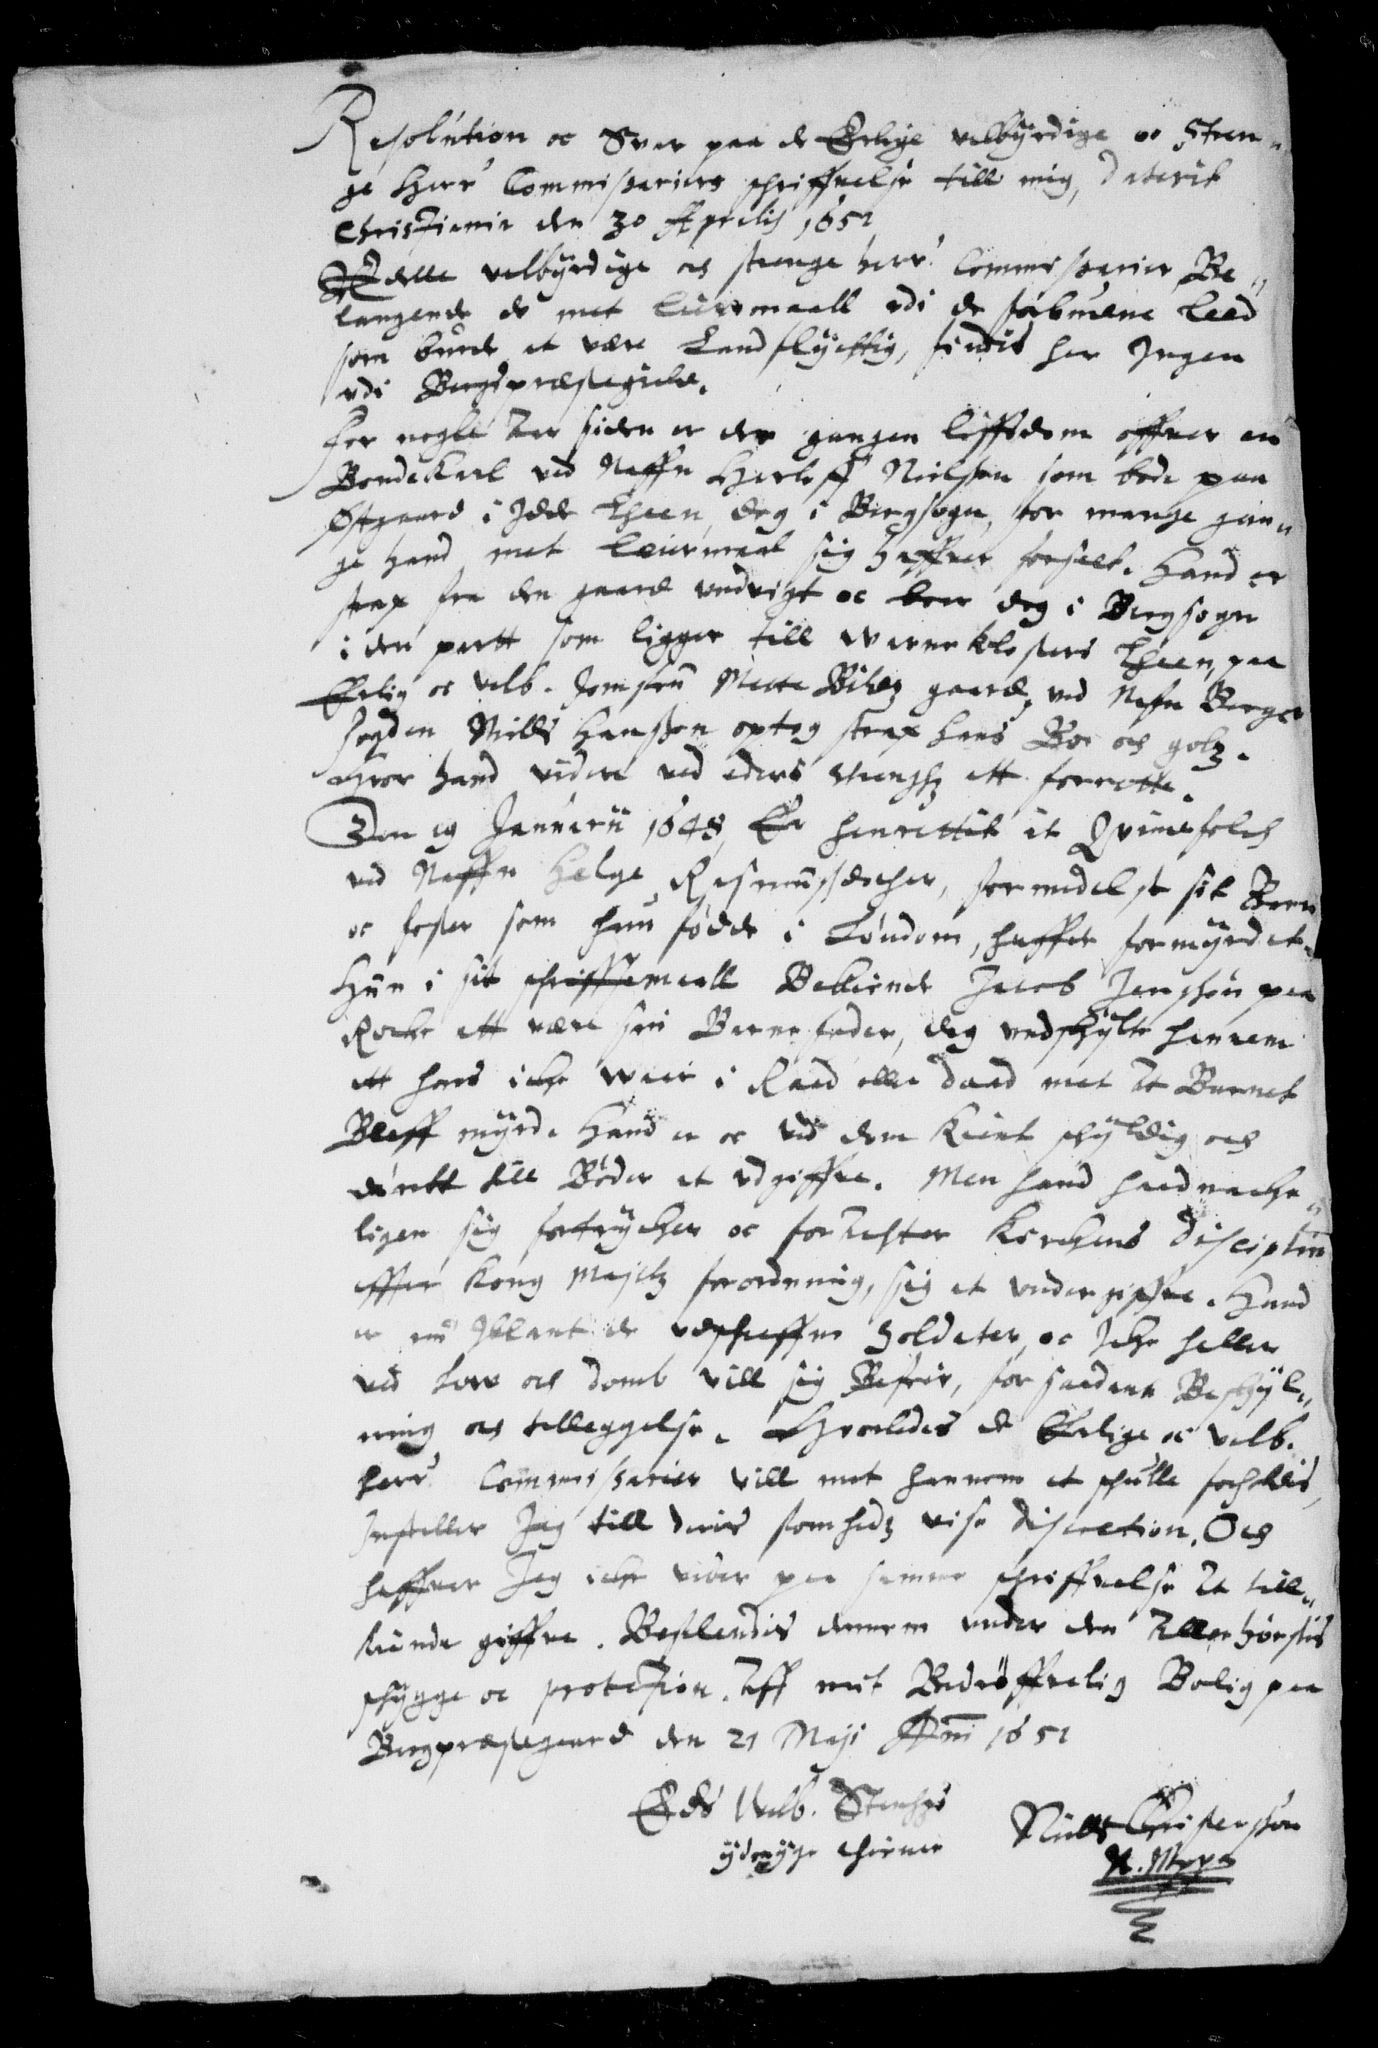 Resolution oc Svar paa de Erlige velbyrdige oc Stren„
ge Herr Commissariers schriffuelse till mig, daterit
Christiania den 30 Aprilis 1651
Edelle velbyrdige och strenge herr Commissarier, Be„
langende de met Leiermaall vdi de forbudene Leed
som burde at være Landflyctig, findis her Ingen
vdi Bergs præstegield.
For nogle Aar siden er der gangen liffsdom offuer en
Bondekarl ved Naffn Herloff Nielsen som bode paa
Østgaard i Idde Lheen, dog i Bergsogn, for mange gan„
ge hand met Leiermaal sig haffuer forseet. Hand er
strax fra den gaard vndvigt oc boer dog i Bergsogn
i den partt som ligger till Werne klosters Lheen, paa
Erlig oc velb. Jomfru Mette gaard, ved Nafn Berger
fogden Niills Hanssen optog strax hans Boe och godtz.
Hvor hand videre ved eders att forrette.
Den 19 Januarii 1648, Er henrettit it Qvindfolch
ved Naffn Helge Rasmussdaather, formedelst sit Barn
oc foster som hun fødde i Løndom, haffde formyrdet.
Hun i sit schrifftemaall Bekiende Jacob Jenssøn paa
att være sin Barnefader, dog vndschylte hannem
att hand icke waar i Raad eller Daad met At Barnet
Bleff myrd. Hand er oc ved dem Kient schyldig och
dømbt till Bøder at vdgiffue. Men hand haardnache„
ligen sig fortrycker oc foracter Kirchens Disciplin
effter Kong Majtz forordning, sig at vndergiffue. Hand
er nu Iblant de vdschreffne Soldater, oc Icke heller
ved Low och domb vill sig Befrie, for saadant Beschyl„
ning och tilleggelse. Hvorledes de Erlige oc velb.
herr Commissarier vill met hannem at schulle forholdis,
Instiller Jeg till deris fromhedz vise discretion. Och
haffuer Jeg icke videre paa samme schriffuelse At till„
kiende giffue. Befalendis dennem vnder den Allerhøyestis
schygge oc protection. Aff mit Bedrøffuelig Bolig paa
Bergpræstegaard den 21 Maji Anni 1651
Eds Velb. Strenghs
ydmyge thiener
Niills Christenssøn